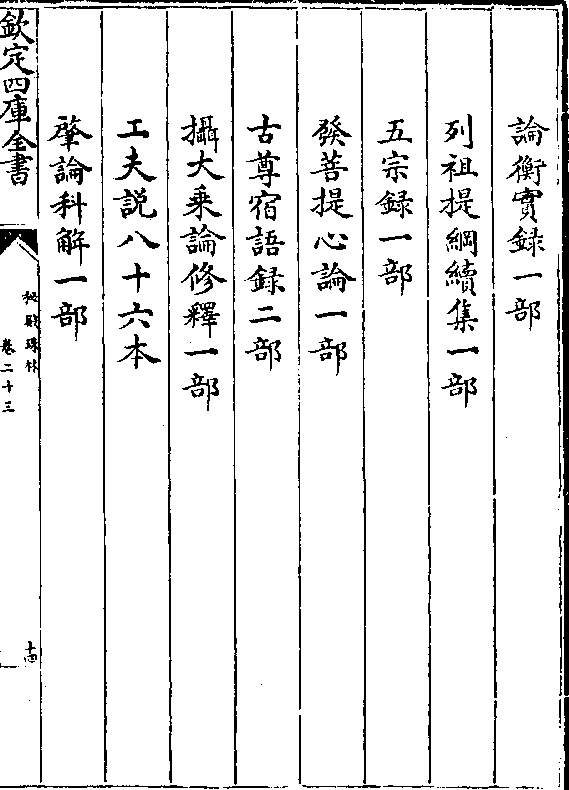 論衡實録一部
列祖提綱續集一部
五宗録一部
發菩提心論一部
古尊宿語録二部
攝大乗論修釋一部
工夫説八十六本
肇論科解一部
欽定四庫全書
秘殿珠林
卷二十三
十四